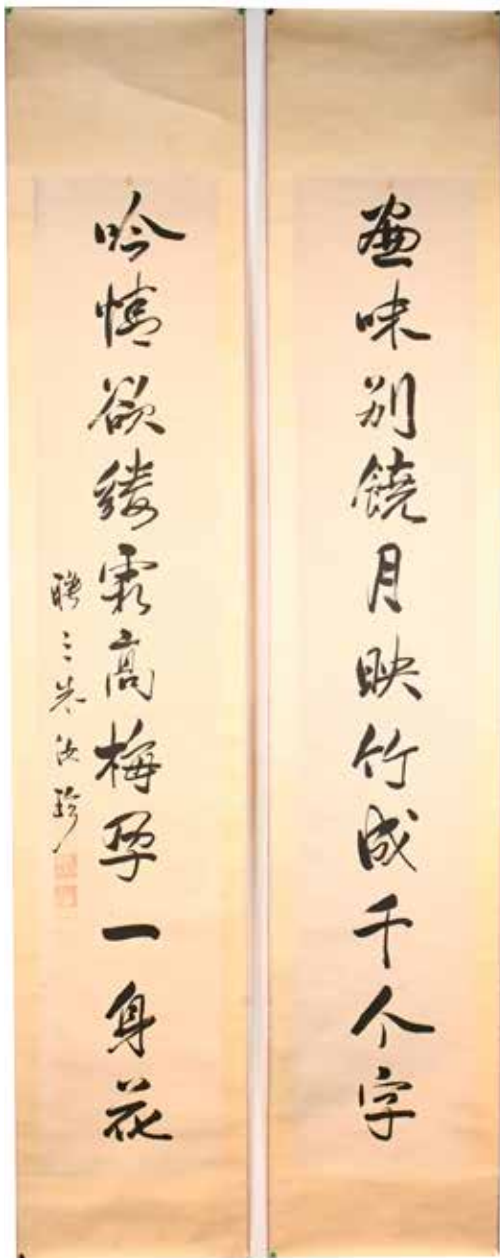 畫味別饒月映竹成千个字
吟情欲縷霜高梅孕一身花
聘三朱汝珍